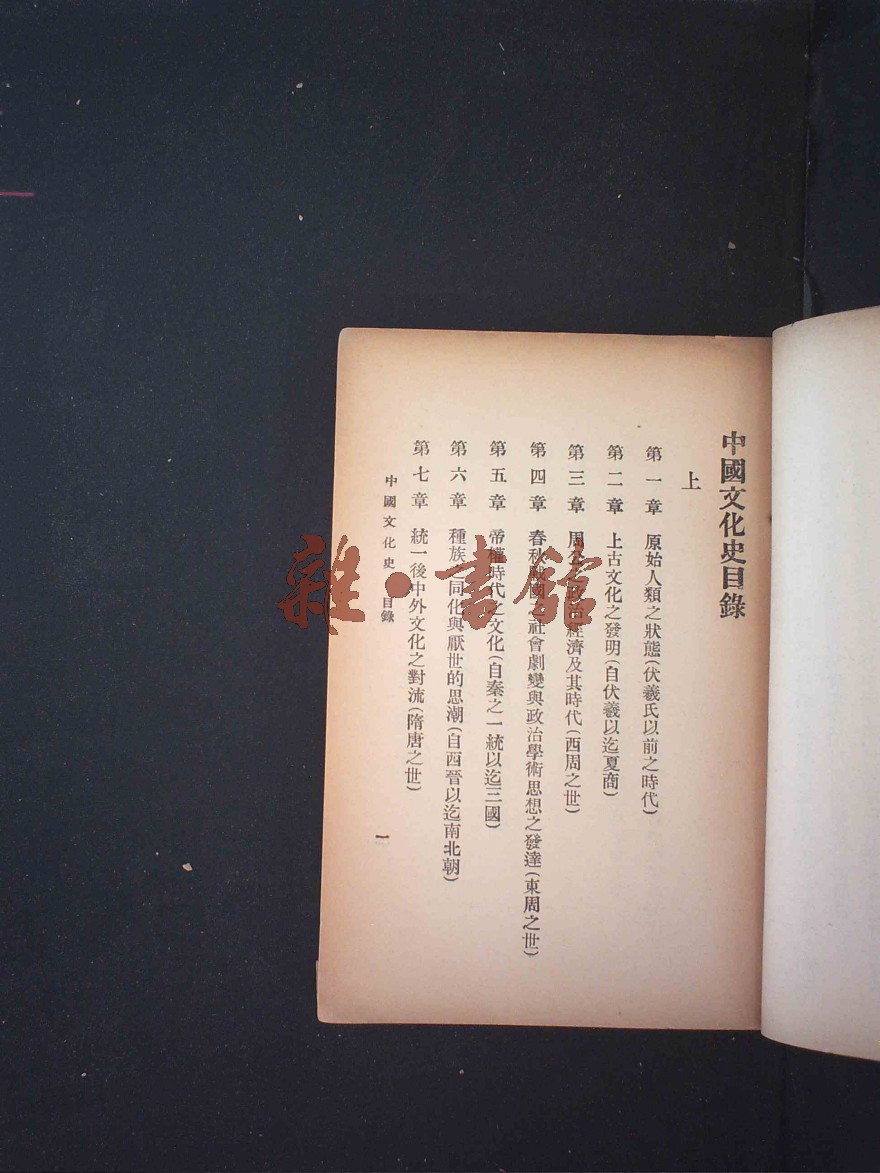 中國文化史目錄
上
第一章　原始人類之狀態(伏羲氏以前之時代)
第二章　上古文化之發明(自伏羲以迄夏商)
第三章　周公之政治經濟及其時代(西周之世)
第四章　春秋戰國之社會劇變與政治學術思想之發達(東周之世)
第五章　帝權時代之文化(自秦之一統以迄三國)
第六章　種族之同化與厭世的思潮(自西晉以迄南北朝)
第七章　統一後中外文化之對流(隋唐之世)
中國文化史　目錄
一
雜·書館